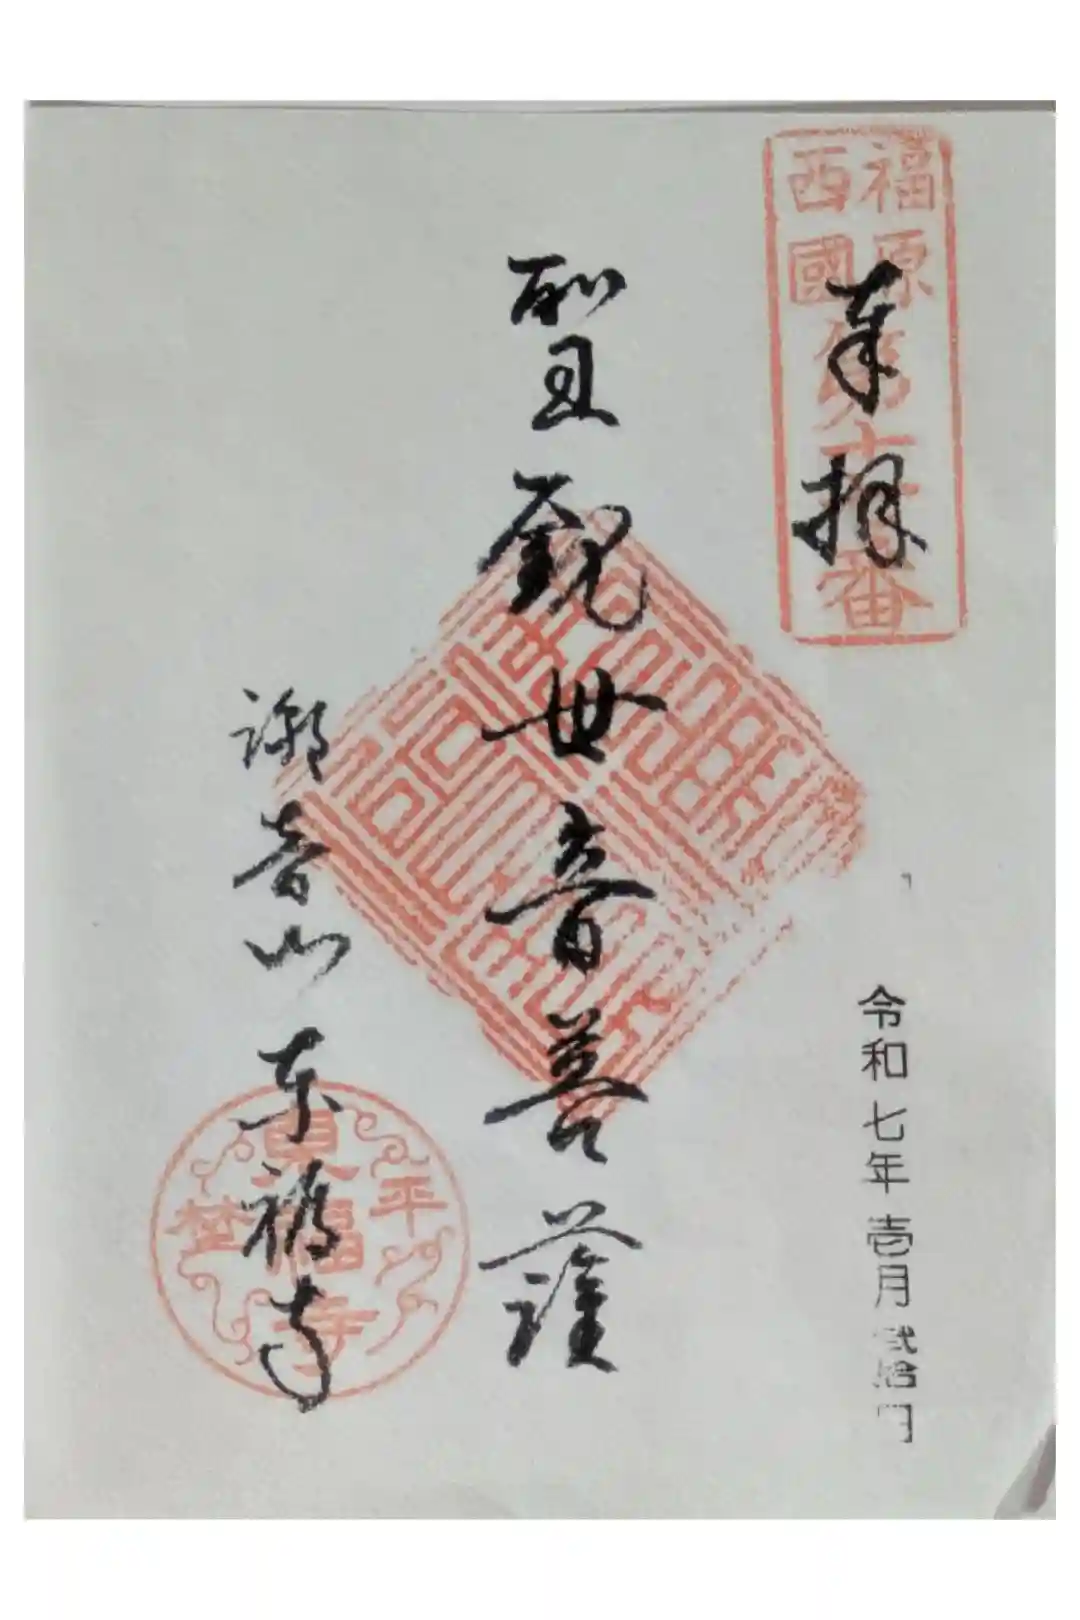 福原
西國
第十番
奉拝
令和七年壱月弐拾日
聖観世音菩薩
潮音山東福寺
平
東福寺
埜